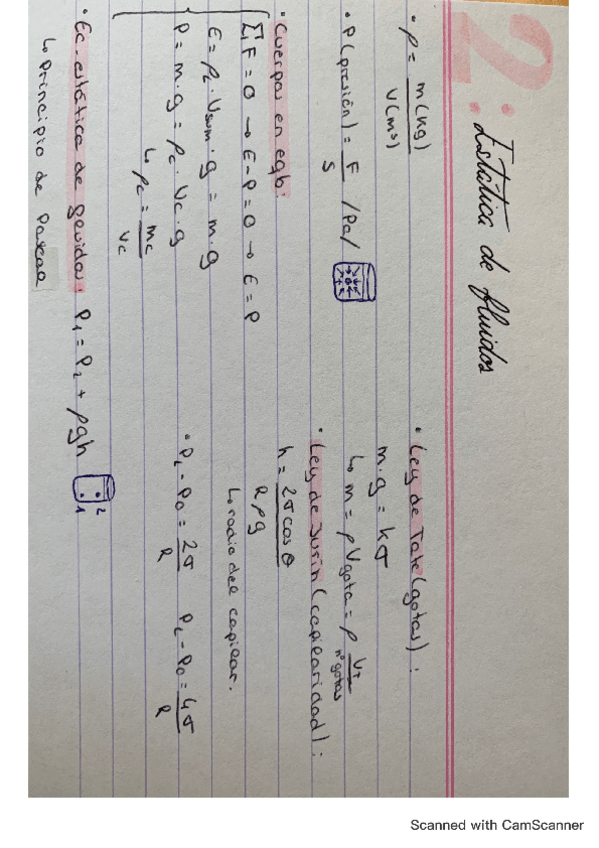 2: Estática de fluidos
• ρ = m(kg) / V(m³)
• P(presión) = F / S /Pa/
• Cuerpos en eqb:
∑F = 0 → E - P = 0 → E = P
E = ρL · Vsum · g = m · g
P = m · g = ρc · Vc · g
↳ ρc = mc / Vc
• Ec. estática de fluidos: P1 = P2 + ρgh
1
2
↳ Principio de Pascal
• Ley de Tate (gotas):
m · g = kσ
↳ m = ρVgota = ρ VT / nºgotas
• Ley de Jurin (capilaridad):
h = 2σcosθ / Rρg
↳ radio del capilar.
• Pi - Po = 2σ / R Pi - Po = 4σ / R
Scanned with CamScanner